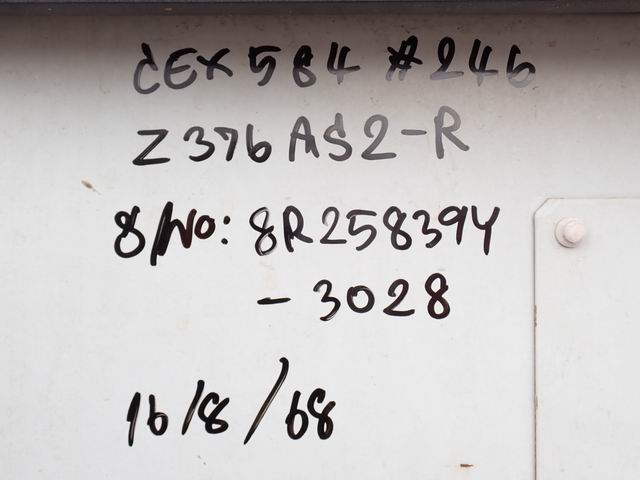 CEX584 #246
Z376AS2-R
S/No: 8R258394
-3028
16/8/68